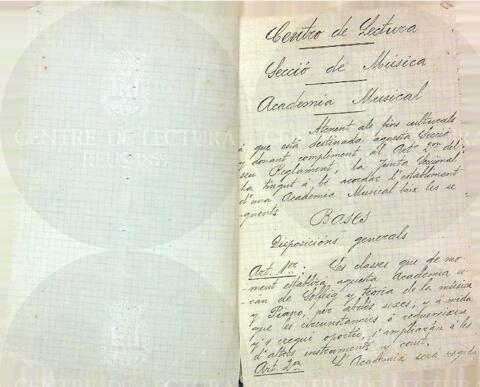 Centro de Lectura
Secció de Música
Academia Musical
Atenent als fins culturals
á que está destinada aquesta Secció
y donant compliment al Artº 2on del
seu Reglament, la Junta Seccional
ha tingut á bé acordar l'establiment
d'una Academia Musical baix les se-
guents
BASES
Disposicións generals
Art. 1er: Les classes que de mo-
ment establirá aquesta Academia se-
rán de Solfeig y teoría de la música
y Piano, per abdós sexes; y á mida
que les circunstancies ó requereixin,
y's cregui oportú, s'ampliarán á les
d'altres instruments y cant.
Art. 2on L'Academia será regida